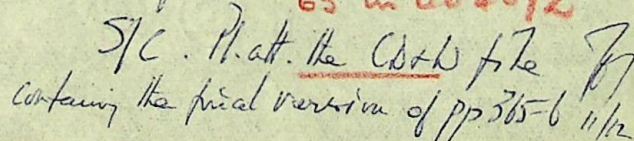 S/C. Pl. att. the CD&W file
containing the final version of pp 365-6 11/12